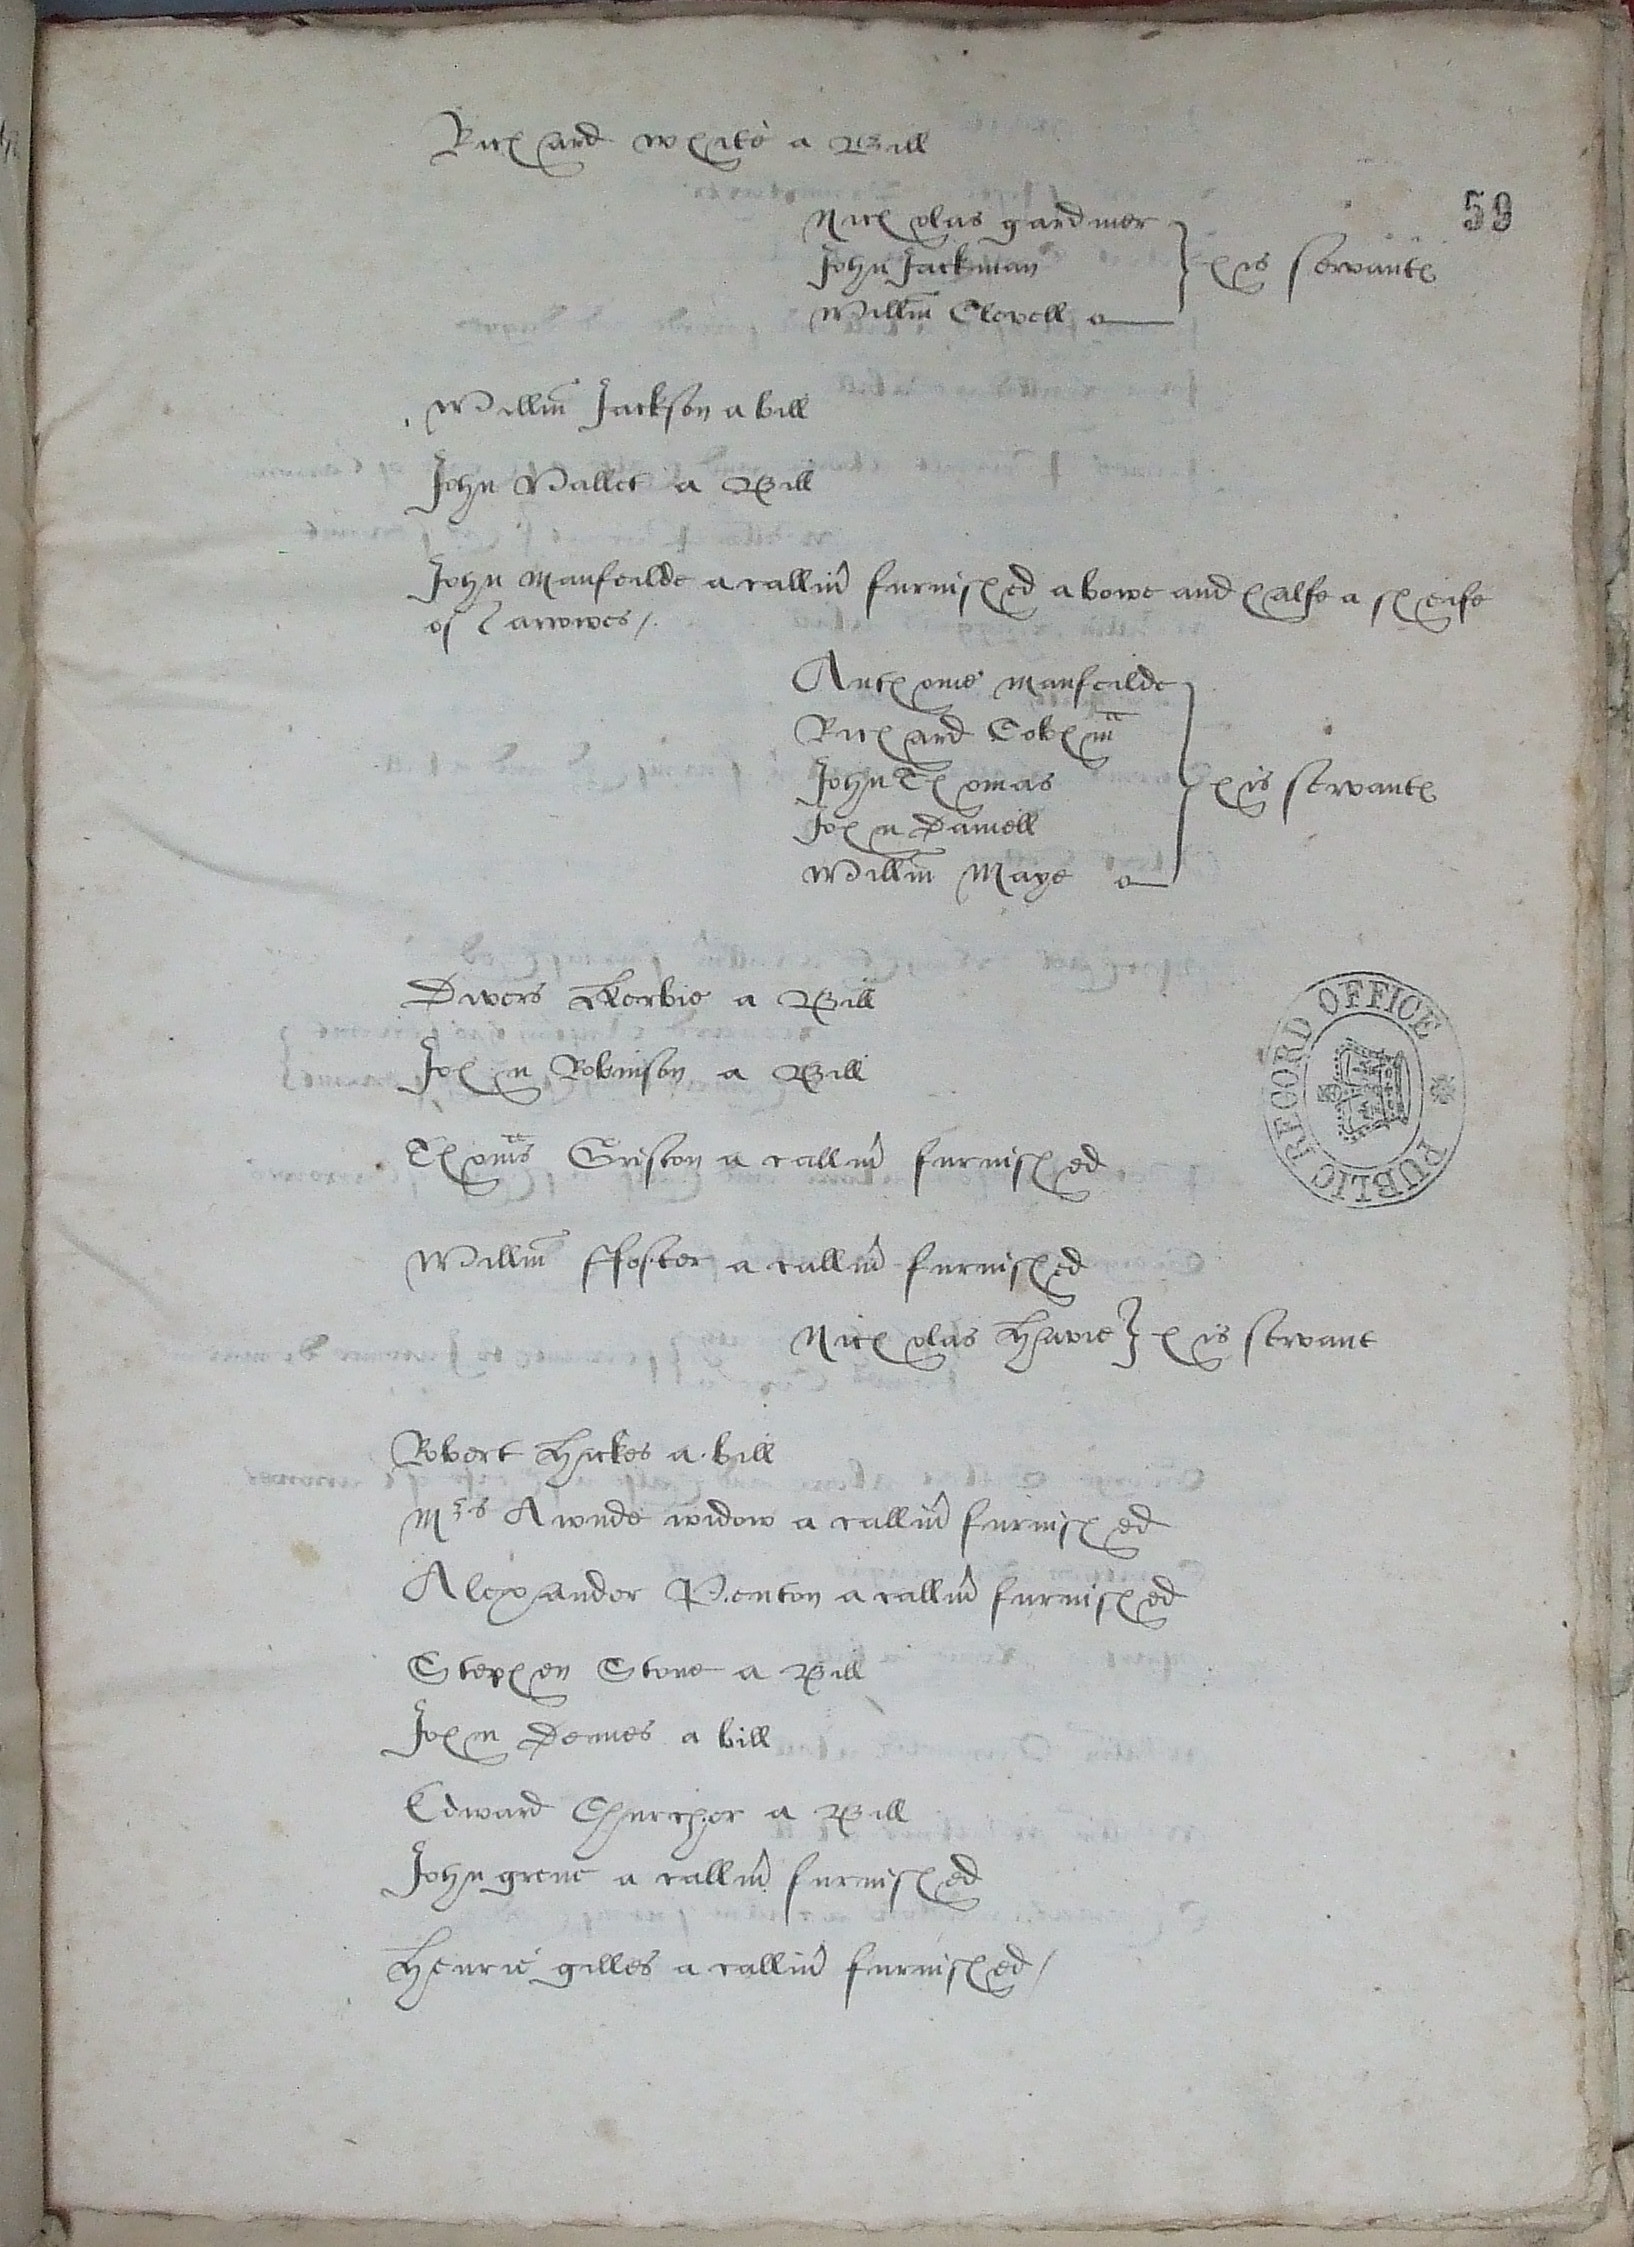 Richard white a Bill
59
Nicholas gardiner
John Jackman
Willm Clevell
his servantes
Willm Jackson a bill
John Vallet a Bill
John Manfeilde a callivr furnished a bowe and halfe a sheife
of arrowes /.
Anthonie Manfeilde
Richard Cobham
John Thomas
John Daniell
Willm Maye
his servantes
Divers Kerbie a Bill
John Robinson a Bill
Thoms Griston a callivr furnished
Willm ffoster a callivr furnished
Nicholas Havie } his servant
Robert Hickes a bill
Mrs Awnde widow a callivr furnished
Alexander Penton a callivr furnished
Stephen Stone a Bill
John Dennes a bill
Edward Churcher a Bill
John grene a callivr furnished
Henrie gilles a callivr furnished /
PUBLIC RECORD OFFICE